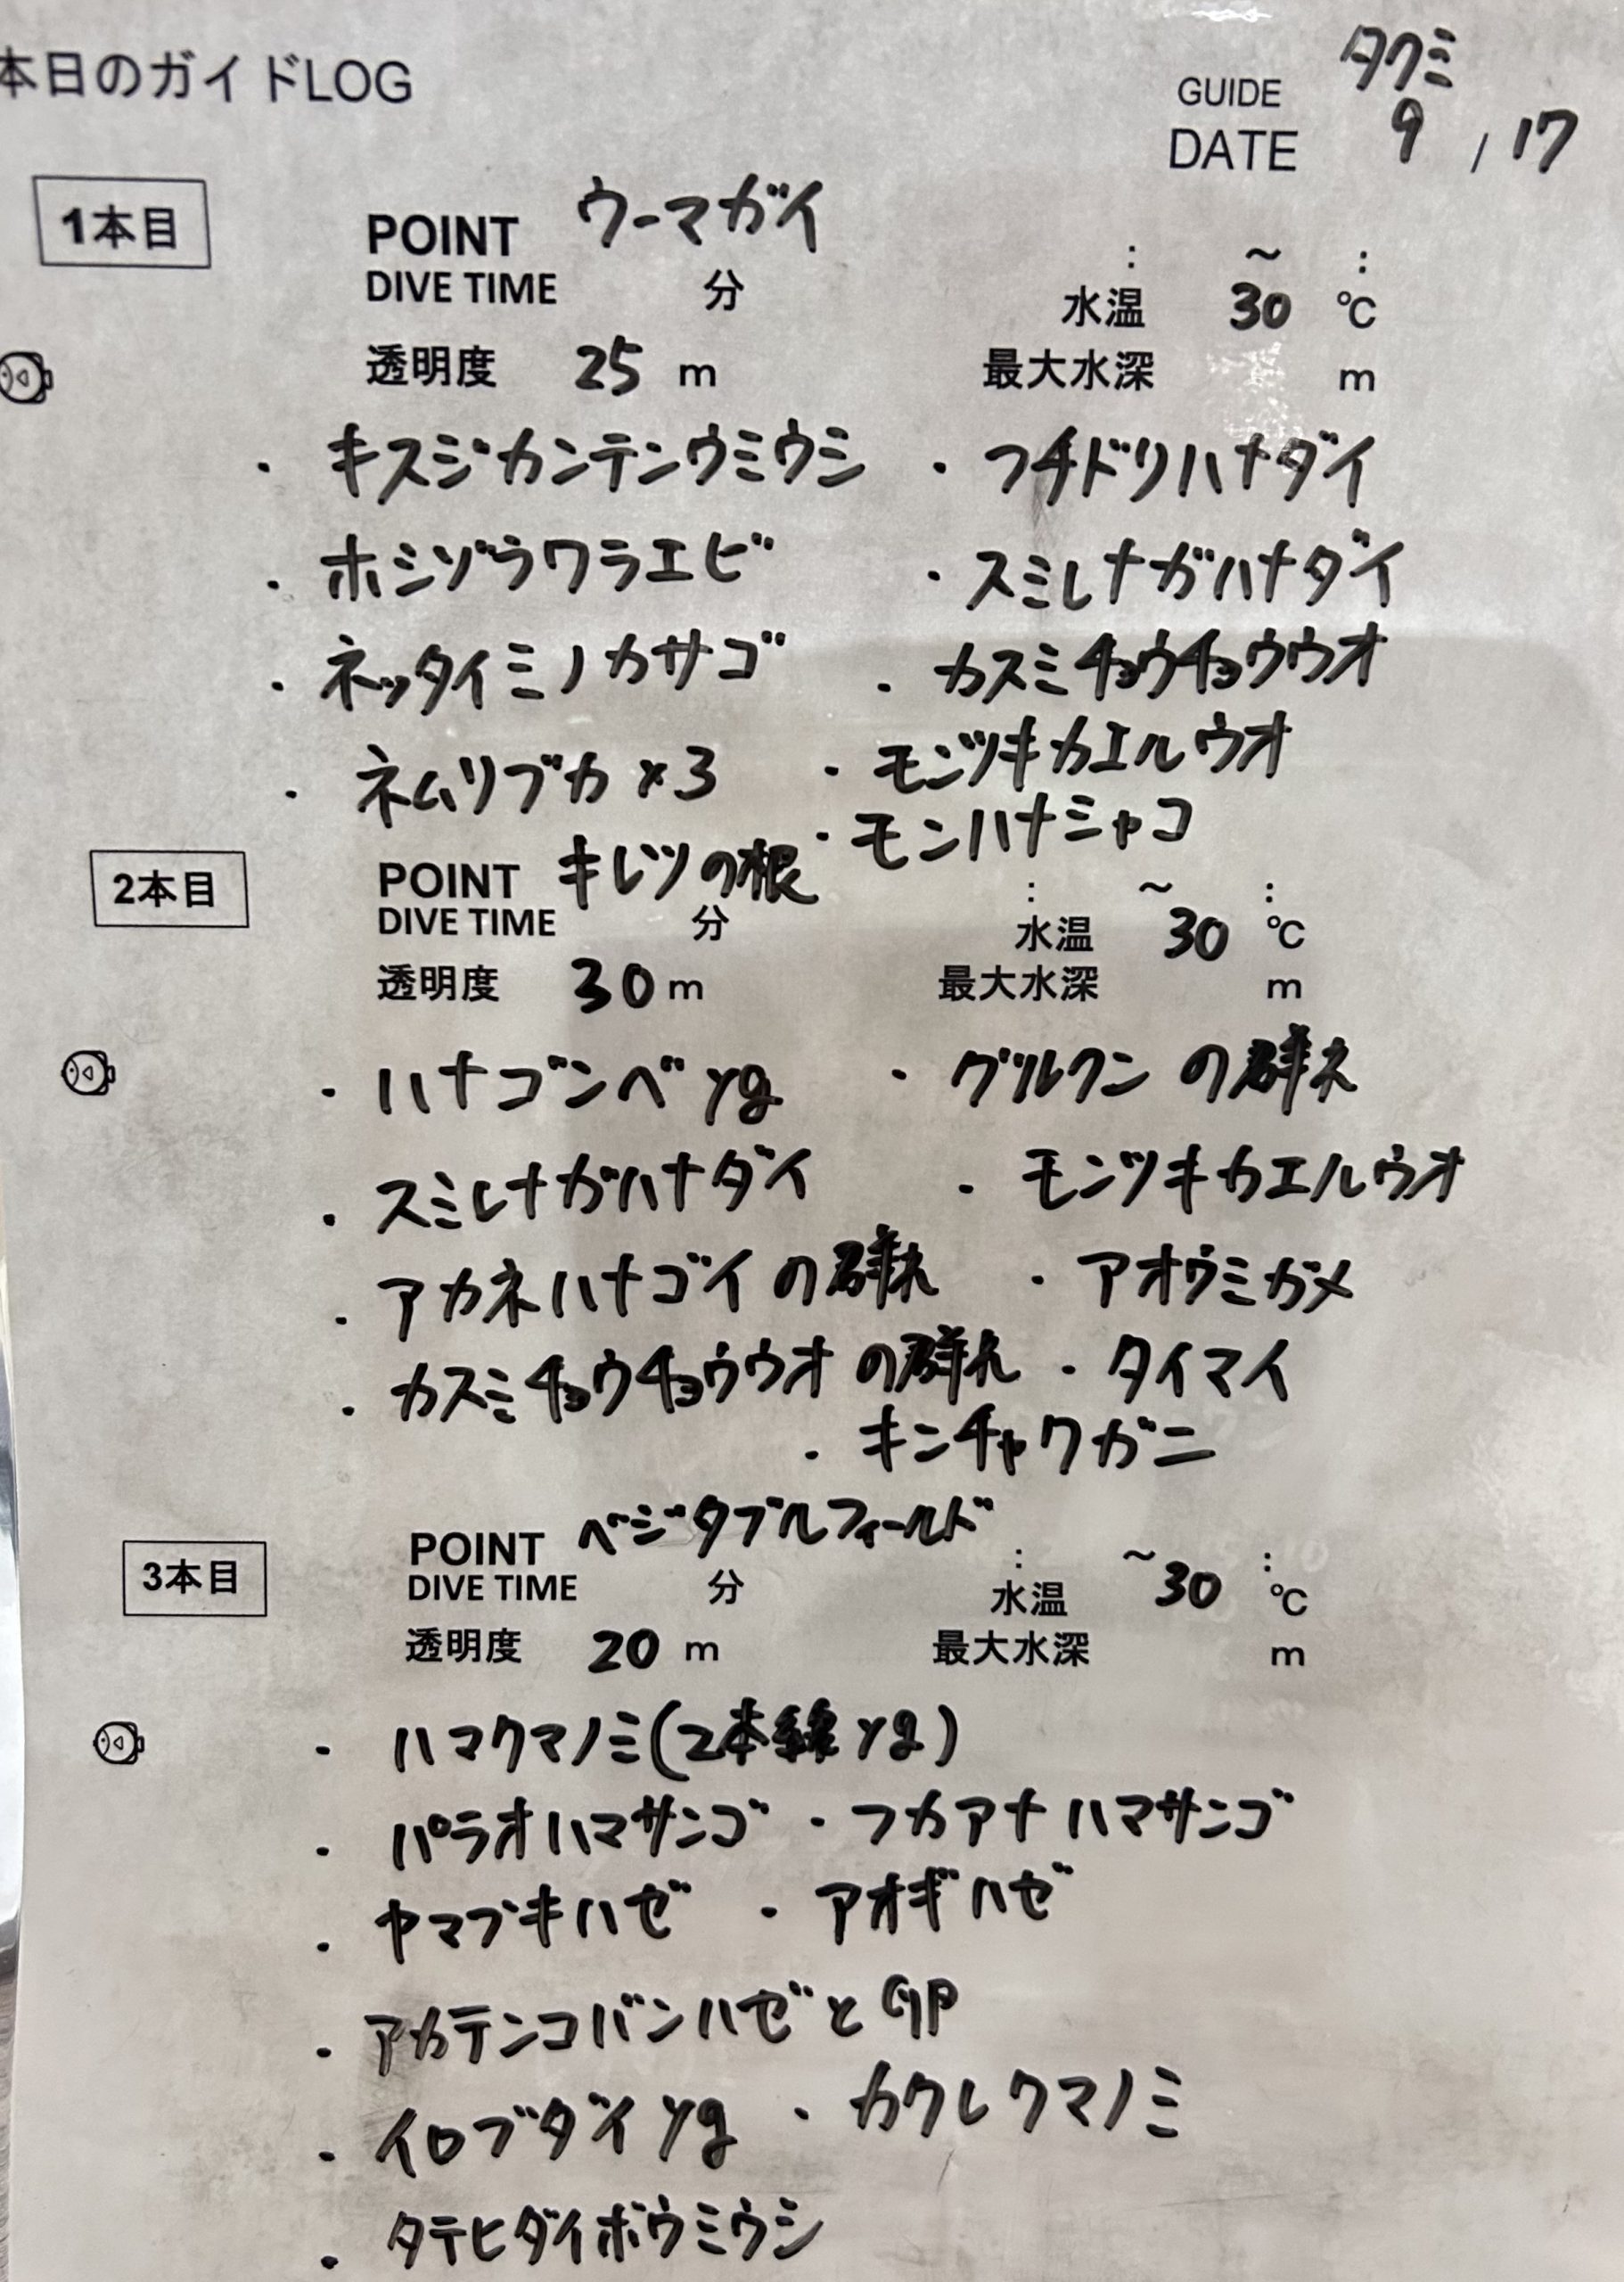 本日のガイドLOG
GUIDE タクミ
DATE 9 / 17
1本目
POINT ウーマガイ
: ～ :
DIVE TIME 分 水温 30 ℃
透明度 25 m 最大水深 m
・キスジカンテンウミウシ ・フチドリハナダイ
・ホシゾラワラエビ ・スミレナガハナダイ
・ネッタイミノカサゴ ・カスミチョウチョウウオ
・ネムリブカ×3 ・モンツキカエルウオ
・モンハナシャコ
2本目
POINT キレツの根
: ～ :
DIVE TIME 分 水温 30 ℃
透明度 30 m 最大水深 m
・ハナゴンベ yg ・グルクンの群れ
・スミレナガハナダイ ・モンツキカエルウオ
・アカネハナゴイの群れ ・アオウミガメ
・カスミチョウチョウウオの群れ ・タイマイ
・キンチャクガニ
3本目
POINT ベジタブルフィールド
: ～ :
DIVE TIME 分 水温 30 ℃
透明度 20 m 最大水深 m
・ハマクマノミ(2本線 yg)
・パラオハマサンゴ ・フカアナハマサンゴ
・ヤマブキハゼ ・アオギハゼ
・アカテンコバンハゼと
・イロブダイ yg ・カクレクマノミ
・タテヒダイボウミウシ